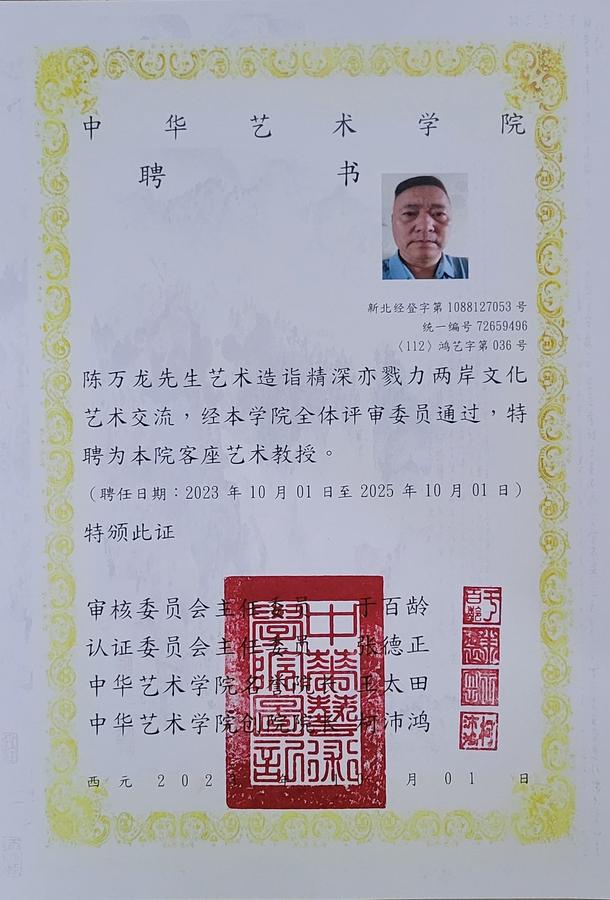 中华艺术学院
聘书
新北经登字第 1088127053 号
统一编号 72659496
〈112〉鸿艺字第 036 号
陈万龙先生艺术造诣精深亦戮力两岸文化
艺术交流，经本学院全体评审委员通过，特
聘为本院客座艺术教授。
（聘任日期：2023 年 10 月 01 日至 2025 年 10 月 01 日）
特颁此证
审核委员会主任委员 于百龄
认证委员会主任委员 张德正
中华艺术学院名誉院长 王太田
中华艺术学院创院院长 柯沛鸿
西元 202 年 月 01 日
中華藝術
學院圖記